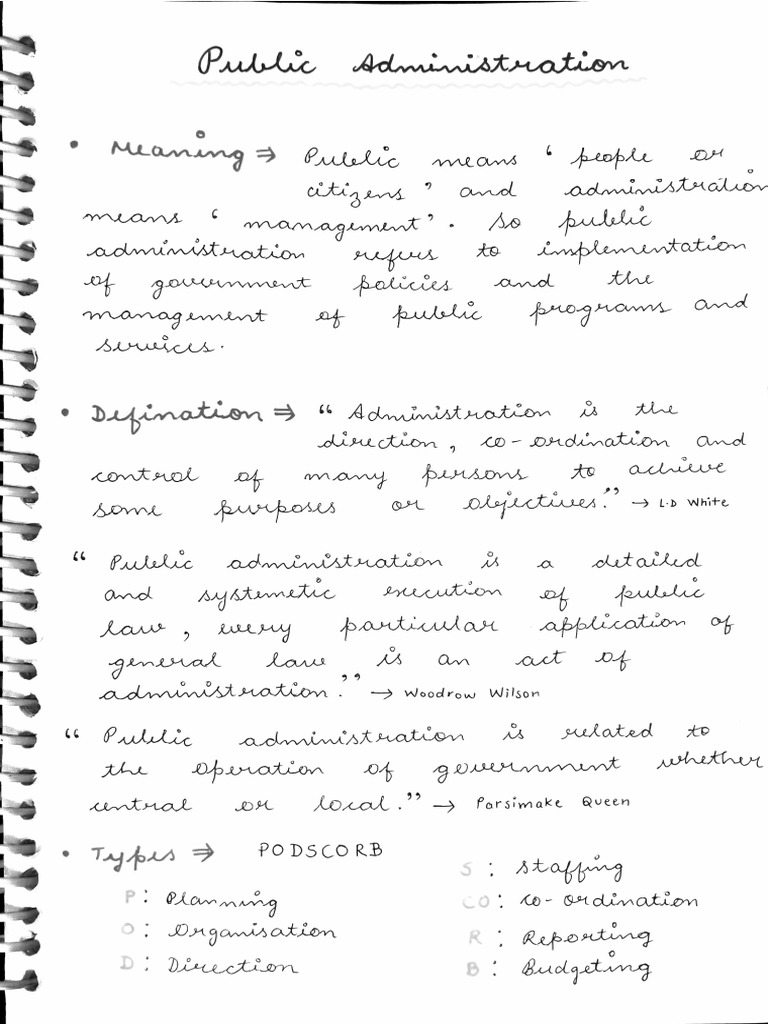 Public Administration
• Meaning ⇒ Public means ‘ people or
citizens ’ and administration
means ‘ management’. So public
administration refers to implementation
of government policies and the
management of public programs and
services.
• Defination ⇒ “ Administration is the
direction, co-ordination and
control of many persons to achieve
some purposes or objectives.” → L.D White
“ Public administration is a detailed
and systemetic execution of public
law, every particular application of
general law is an act of
administration.” → Woodrow Wilson
“ Public administration is related to
the operation of government whether
central or local.” → Parsimake Queen
• Types ⇒ PODSCORB
P : Planning
O : Organisation
D : Direction
S : Staffing
CO : Co-ordination
R : Reporting
B : Budgeting